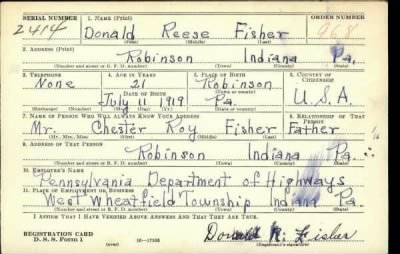 SERIAL NUMBER 1. NAME (Print) ORDER NUMBER
2414 Donald Reese Fisher 968
(First) (Middle) (Last)
2. ADDRESS (Print)
Robinson Indiana Pa.
(Number and street or R. F. D. number) (Town) (County) (State)
3. TELEPHONE 4. AGE IN YEARS 5. PLACE OF BIRTH 6. COUNTRY OF CITIZENSHIP
None 21 Robinson
DATE OF BIRTH (Town or county)
July 11 1919 Pa. U.S.A.
(Exchange) (Number) (Mo.) (Day) (Yr.) (State or country)
7. NAME OF PERSON WHO WILL ALWAYS KNOW YOUR ADDRESS 8. RELATIONSHIP OF THAT PERSON
Mr. Chester Roy Fisher Father
(Mr., Mrs., Miss) (First) (Middle) (Last)
9. ADDRESS OF THAT PERSON
Robinson Indiana Pa.
(Number and street or R. F. D. number) (Town) (County) (State)
10. EMPLOYER'S NAME
Pennsylvania Department of Highways
11. PLACE OF EMPLOYMENT OR BUSINESS
West Wheatfield Township Indiana Pa.
(Number and street or R. F. D. number) (Town) (County) (State)
I AFFIRM THAT I HAVE VERIFIED ABOVE ANSWERS AND THAT THEY ARE TRUE.
REGISTRATION CARD
D. S. S. Form 1 16—17105 Donald R. Fisher
(Registrant's signature)